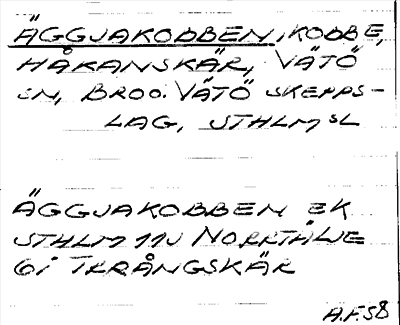 ÄGGJAKOBBEN, KOBBE,
HÅKANSKÄR, VÄTÖ
SN, BRO O. VÄTÖ SKEPPS-
LAG, STHLM SL
ÄGGJAKOBBEN EK
STHLM 11J NORRTÄLJE
6i TRRÅNGSKÄR
A.F. 58